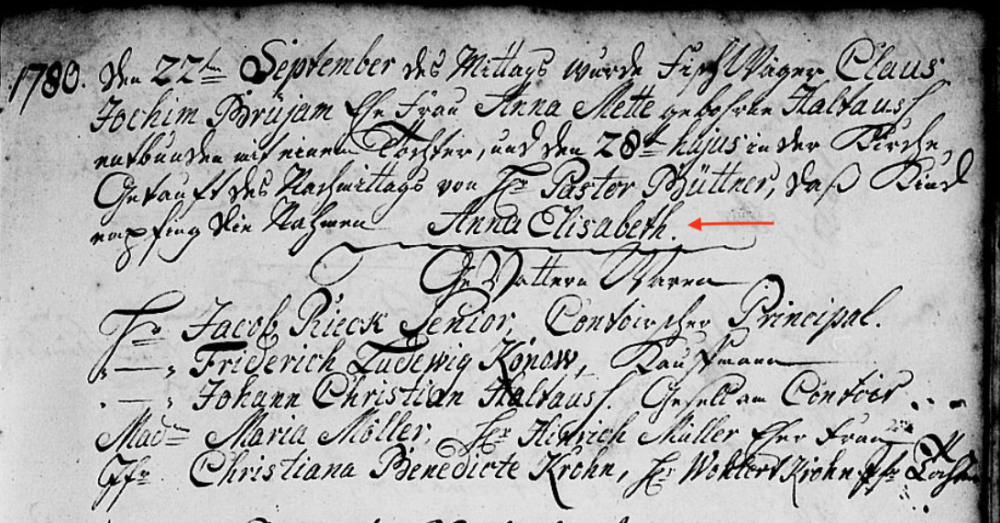 1780. Den 22ten September des Mittags wurde Fisch Wäger Claus
Jochim Brüjam Ehe Frau Anna Mette gebohrne Haltauss
entbunden mit einem Tochter, und den 28t hujus in der Kirche
Getauft des Nachmittags von Hr Pastor Büttner, daß Kind
empfing die Nahmen Anna Elisabeth.
Ge Vattern Waren
Hr Jacob Rieck Senior, Contoirscher Principal.
— Friderich Ludewig Könow, Kauffmann
— Johann Christian Haltauss. Gesell am Contoir
Madm Maria Möller, Hr Hinrich Müller Ehe Frau
Jfr. Christiana Benedicte Krohn, Hr Wohlert Krohn Jfr Tochter